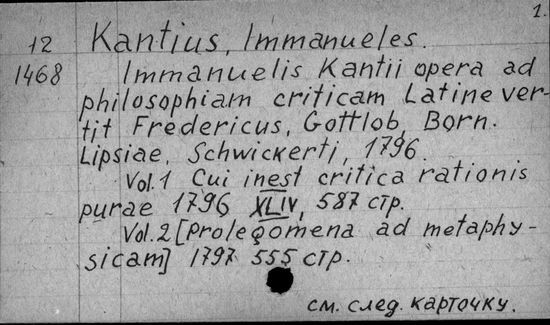 1.
12 Kantius, Immanueles.
1468 Immanuelis Kantii opera ad
philosophiam criticam Latine ver-
tit Fredericus, Gottlob, Born.
Lipsiae, Schwickerti, 1796.
Vol.1 Cui inest critica rationis
purae 1796 XLIV, 587 стр.
Vol.2 [Prolegomena ad metaphy-
sicam] 1797 555 стр.
см. след. карточку.